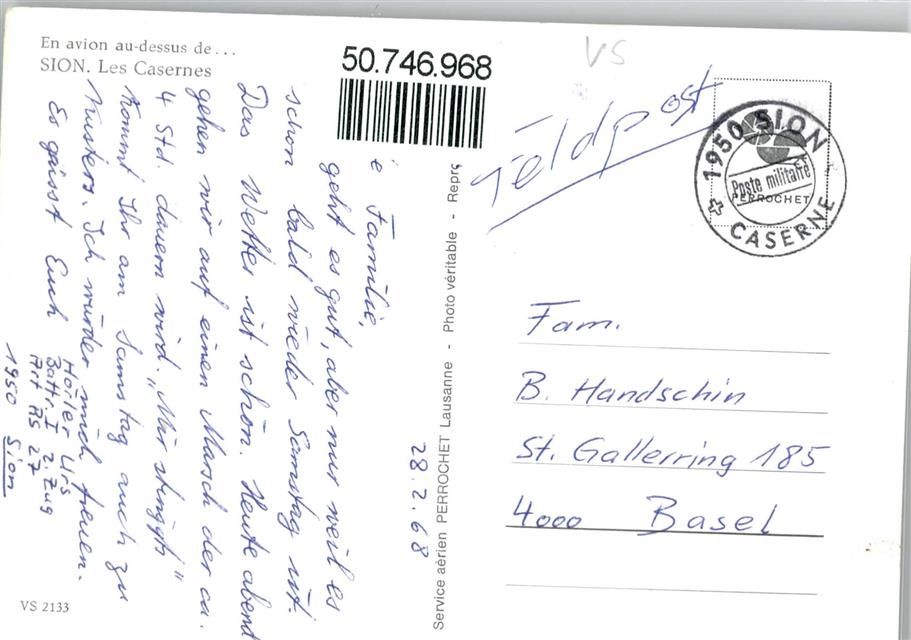 En avion au-dessus de...
SION. Les Casernes
50.746.968
VS
Feldpost
1950 SION
Poste militaire
PERROCHET
CASERNE
28.2.68
e Familie,
geht es gut, aber nur weil es
schon bald wieder Samstag ist.
Das Wetter ist schön. Heute abend
gehen wir auf einen Marsch der ca.
4 Std. dauern wird. „Mir stinggts"
Kommt Ihr am Samstag auch zu
Kusters. Ich würder mich freuen.
Es grüsst Euch
Hofer Urs
Battr. I 2. Zug
Art RS 27
1950 Sion
Service aérien PERROCHET Lausanne - Photo véritable - Repr
Fam.
B. Handschin
St. Gallerring 185
4000 Basel
VS 2133